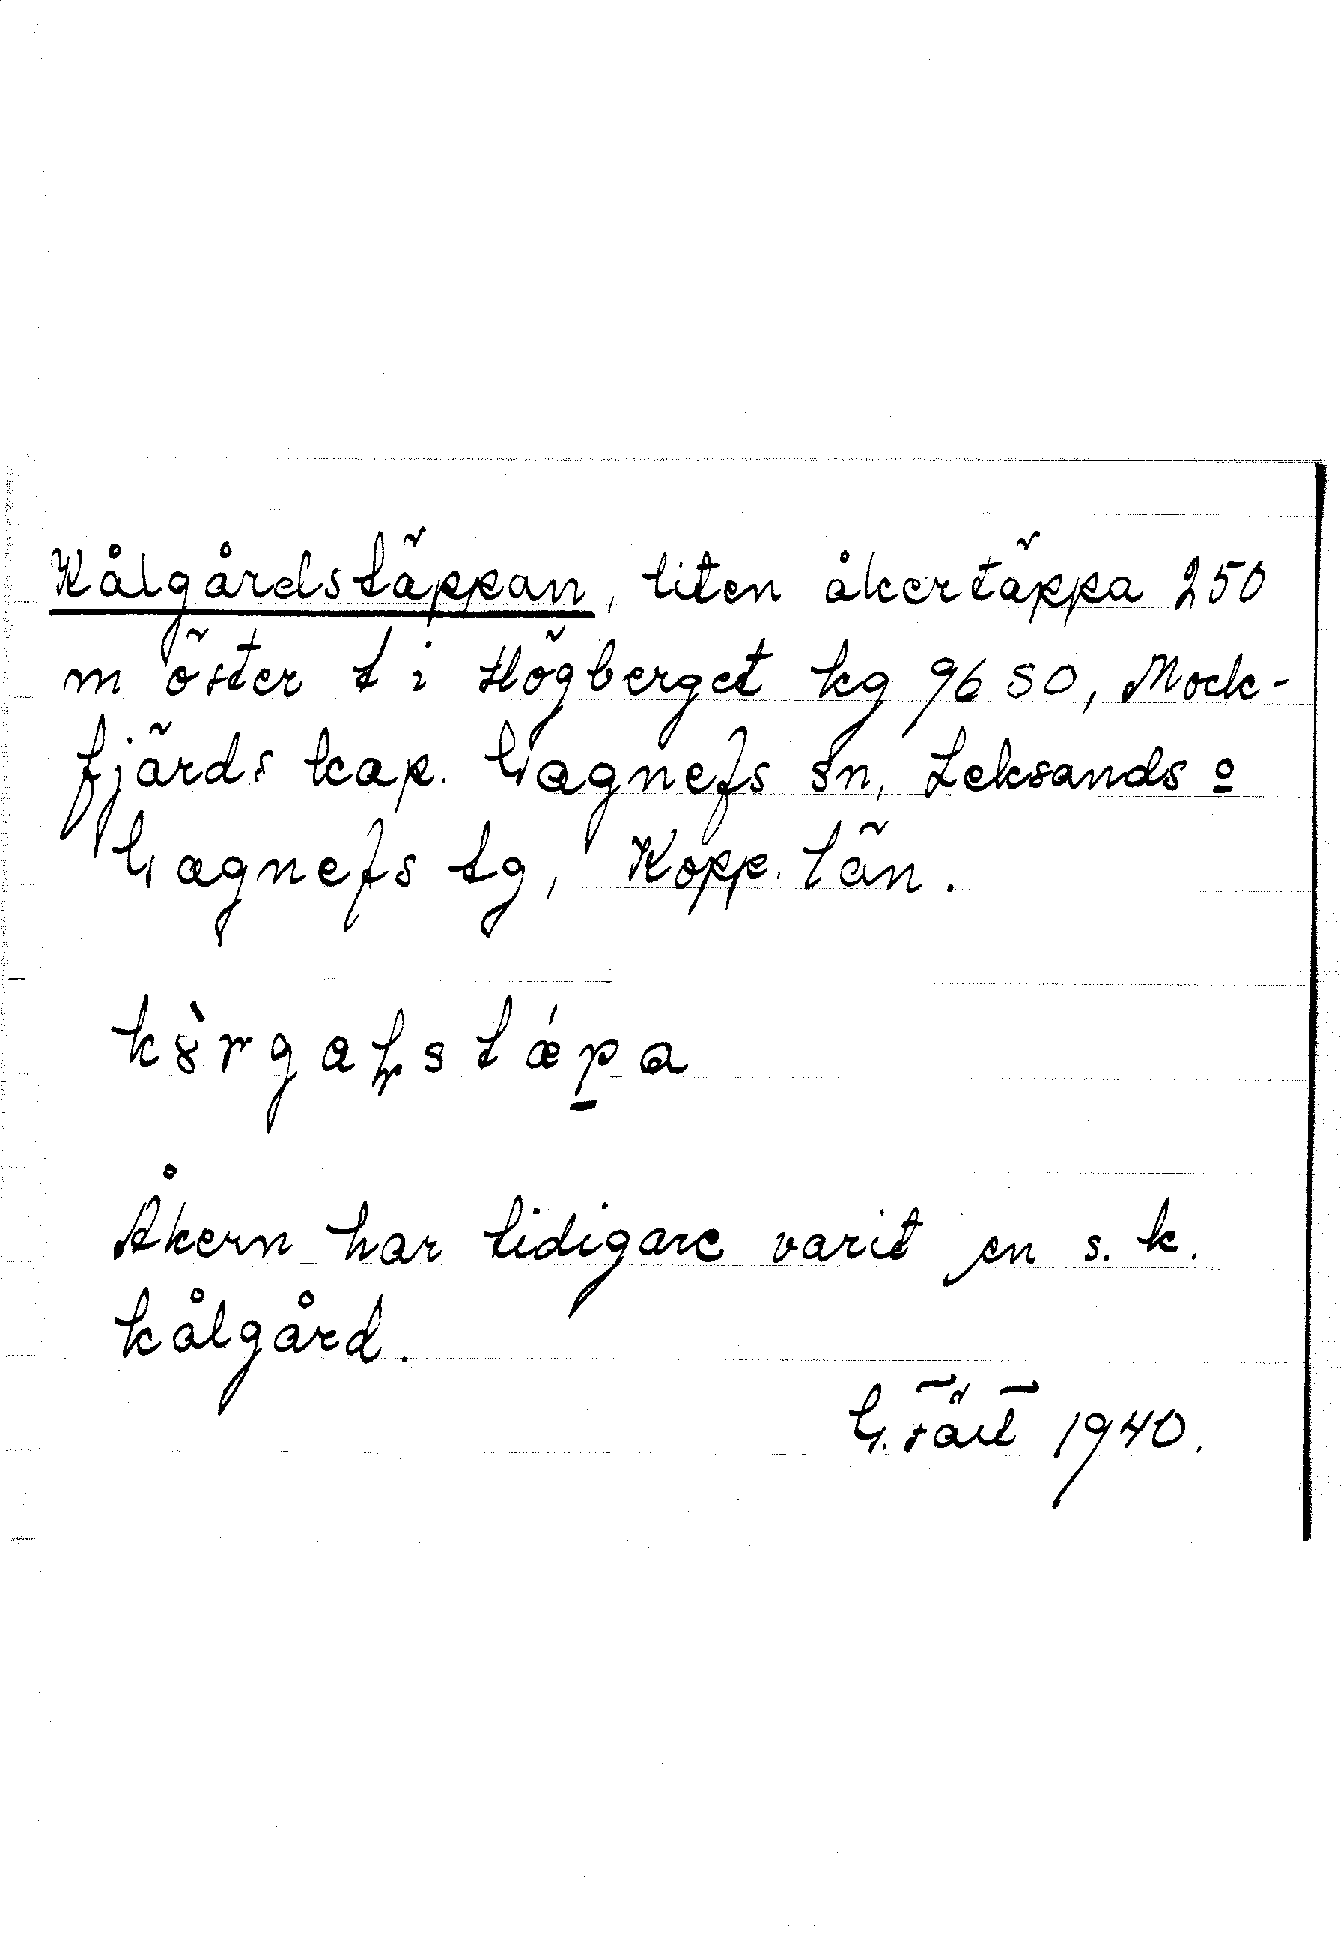 Kålgårdstäppan, liten åkertäppa 250
m öster t i Högberget kg 9680, Mock-
fjärds kap. Gagnefs sn, Leksands o
Gagnefs tg, Kopp. län.
Åkern har tidigare varit en s. k.
kålgård.
G. 1940.